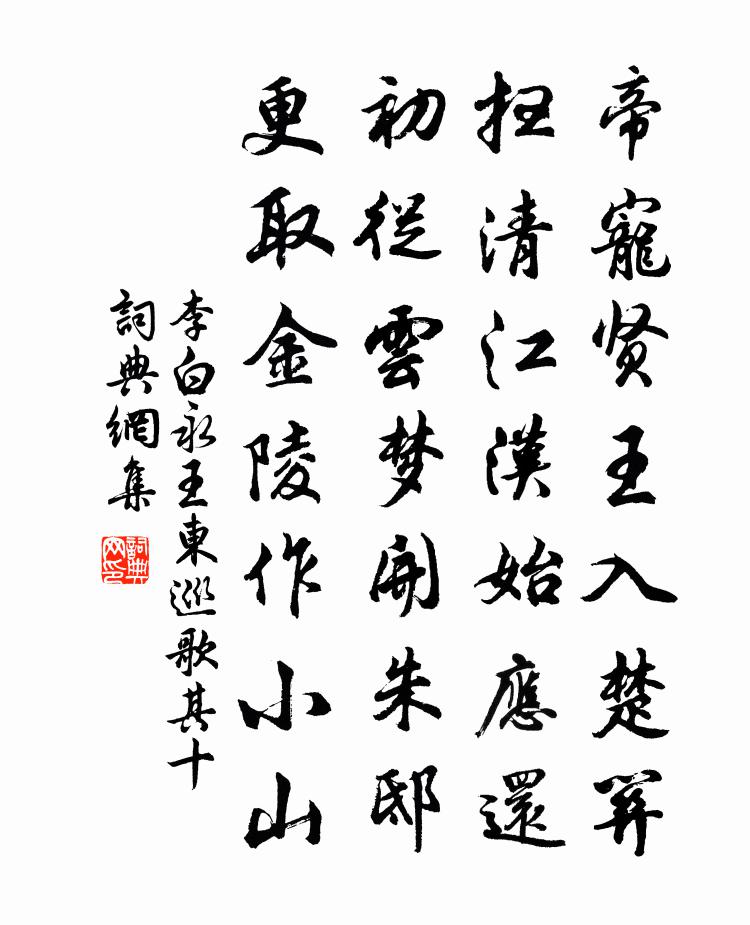 帝寵贤王入楚關
扫清江漢始應還
初從雲梦開朱邸
更取金陵作小山
李白永王東巡歌其十
詞典網集
詞典网印